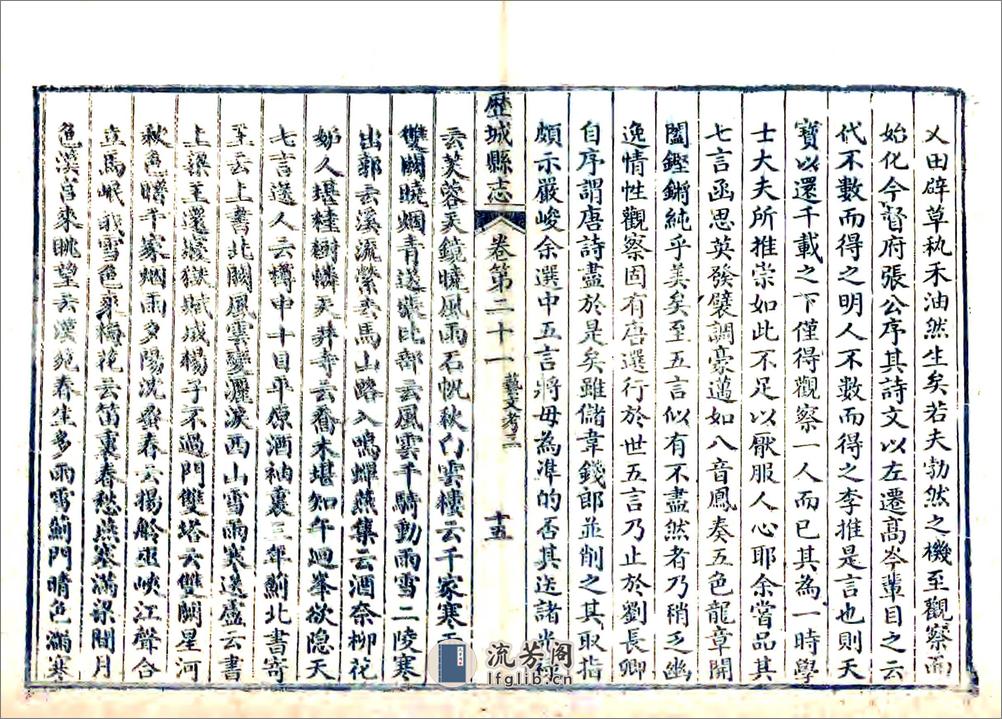 乂田辟草執禾油然生矣若夫勃然之機至觀察而
始化今督府張公序其詩文以左遷高岑輩目之云
代不數而得之明人不數而得之李推是言也則天
寶以還千載之下僅得觀察一人而已其為一時學
士大夫所推崇如此不足以厭服人心耶余嘗品其
七言函思英發襞調豪邁如八音鳳奏五色龍章開
闔鏗鏘純乎美矣至五言似有不盡然者乃稍乏幽
逸情性觀察固有唐選行於世五言乃止於劉長卿
自序謂唐詩盡於是矣雖儲韋錢郎並削之其取指
頗示嚴峻余選中五言將毋為準的否其送諸光祿
歷城縣志
卷第二十一
藝文考三
十五
云芙蓉天鏡曉風雨石帆秋白雲樓云千家寒
雙闕曉烟青送張比部云風雲千騎動雨雪二陵寒
出郭云溪流縈去馬山路入鳴蟬燕集云酒奈柳花
妒人堪桂樹憐天井寺云喬木堪知午迴峯欲隱天
七言送人云樽中十日平原酒袖裏三年薊北書寄
王云上書北闕風雲變灑淚西山雪雨寒送盧云書
上梁王還寢獄賦成楊子不過門雙塔云雙闕星河
秋色曙千家烟雨夕陽沈答春云揚舲巫峽江聲合
立馬岷峩雪色來梅花云笛裏春愁燕塞滿梁間月
色漢宮來眺望云漢苑春生多雨雪薊門晴色滿寒
流芳阁
lfglib.cn